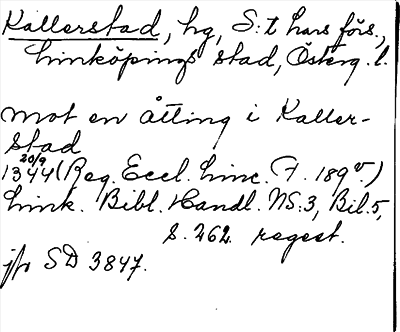 Kallerstad, hg, S:t Lars förs.,
Linköpings stad, Österg. l.
mot en åtting i Kaller-
stad
20/9
1344 (Reg. Eccl. Linc. F. 189 v.)
Link. Bibl. Handl. NS:3, Bil. 5,
S. 262. regest.
jfr SD 3847.